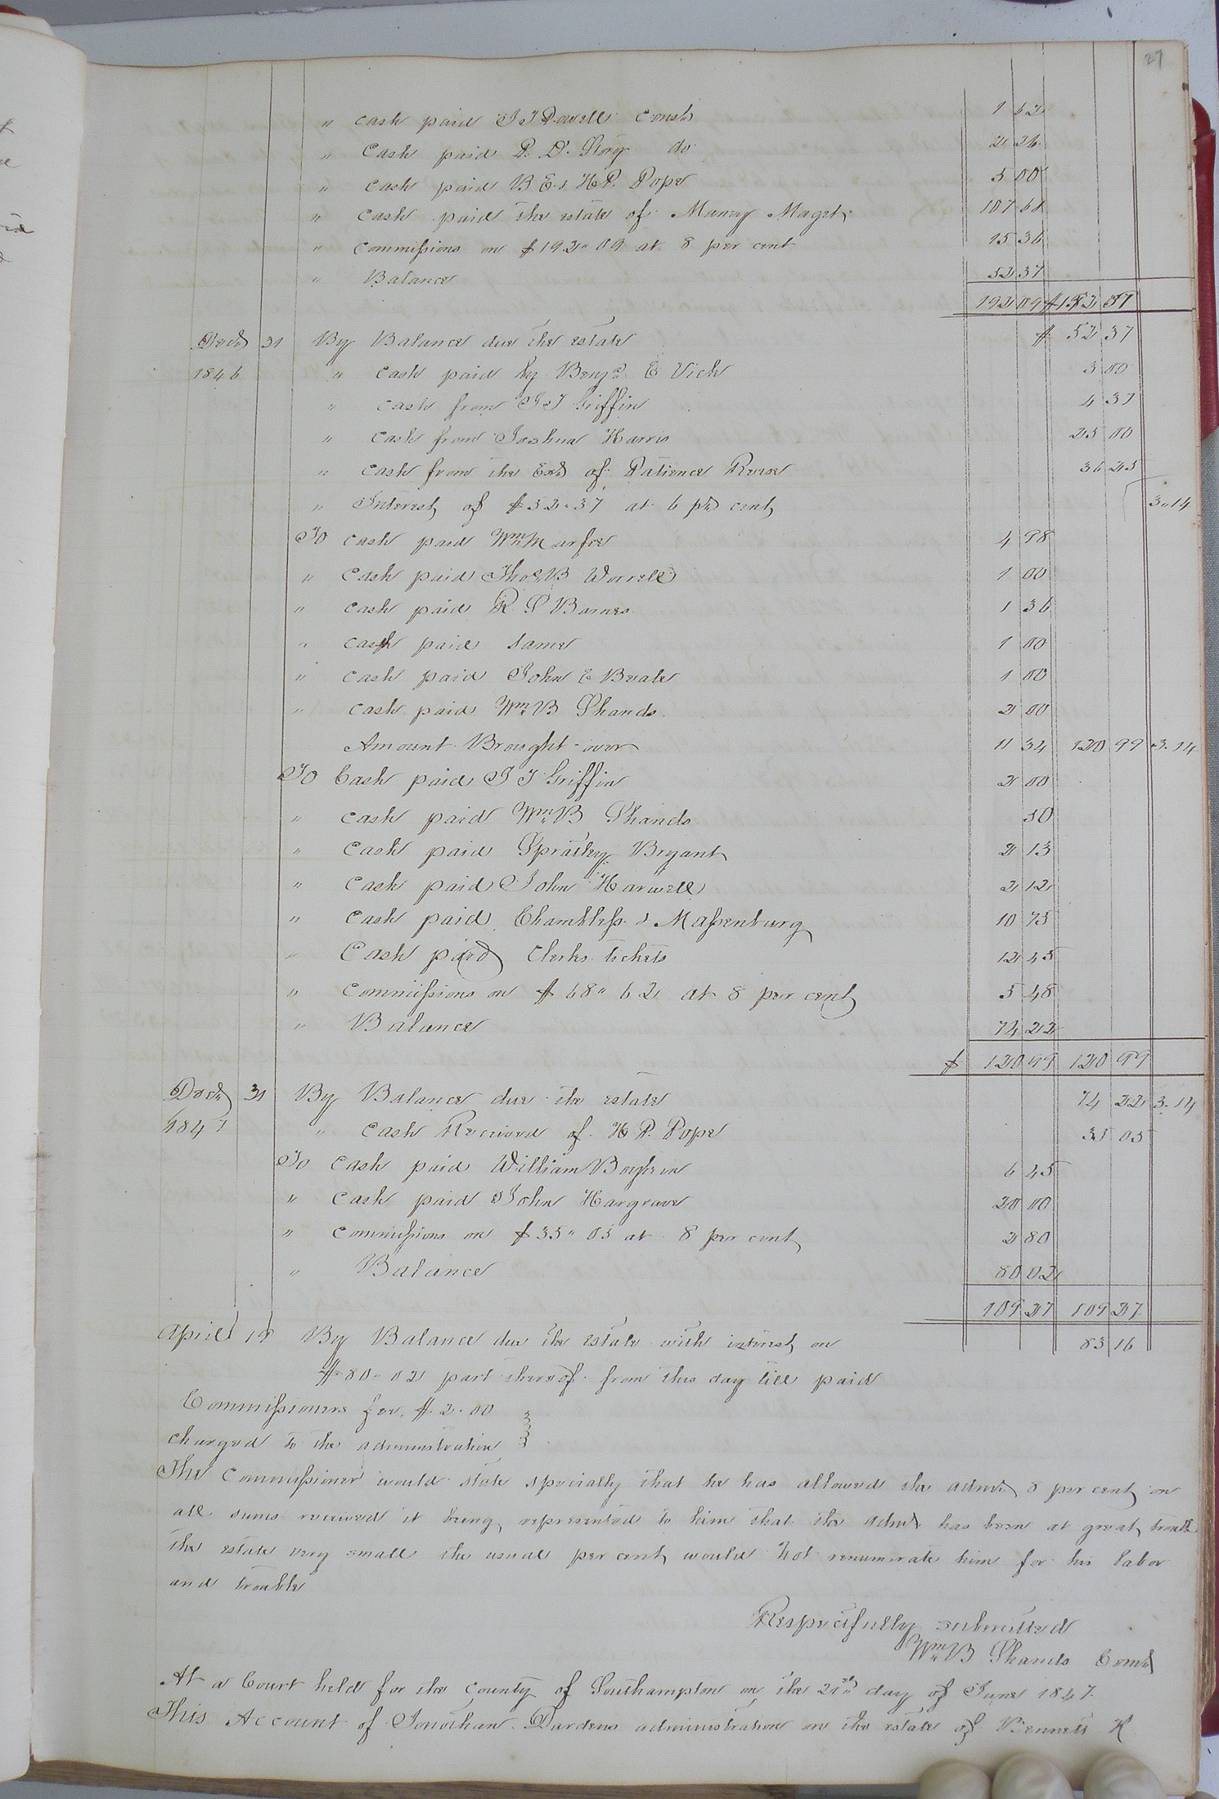 27
" cash paid J J Powell Const 1 62
" Cash paid P. D. Story do 2 36
" cash paid B E & H P. Pope 5 00
" cash paid the estate of Maney Magets 107 61
" commissions on $192" 09 at 8 per cent 15 36
" Balance 52 37
192 09 $192 09
Decr 31 By Balance due the estate $ 52 37
1846 " cash paid by Benja E Vick 3 00
" cash from J J Griffin 4 37
" cash from Joshua Harris 25 00
" cash from the Exr of Patience Reese 36 25
" Interest of $52.37 at 6 pr cent 3.14
To cash paid Wm 4 98
" Cash paid Thos B Worrell 1 00
" cash paid R S Barnes 1 36
" cash paid same 1 00
" cash paid John E Beale 1 00
" cash paid Wm B Shands 2 00
Amount Brought over 11 34 120 99 3.14
To Cash paid J J Griffin 2 00
" cash paid Wm B Shands 50
" cash paid Spratley Bryant 2 13
" cash paid John Harwell 2 12
" cash paid Chambliss & Massenburg 10 75
" Cash paid Clerks tickets 12 45
" commissions on $68" 62 at 8 per cent 5 48
" Balance 74 22
$ 120 99 120 99
Decr 31 By Balance due the estate 74 22 3.14
1847 " cash Received of H P. Pope 35 05
To cash paid William 6 45
" cash paid John Hargrave 20 00
" commissions on $35" 05 at 8 per cent 2 80
" Balance 80 02
109 27 109 27
April 19 By Balance due the estate with interest on 83 16
$80.02 part thereof from this day till paid
Commissioners fee $2.00
charged to the administration
The commissioner would state specially that he has allowed the admr 8 per cent on
all sums received it being represented to him that the admr has been at great trouble
the estate very small the usual per cent would not renumerate him for his labor
and trouble
Respectfully submitted
Wm B Shands Comr
At a Court held for the county of Southampton on the 21st day of June 1847.
This Account of Jonathan Dardens administration on the estate of Bennett H